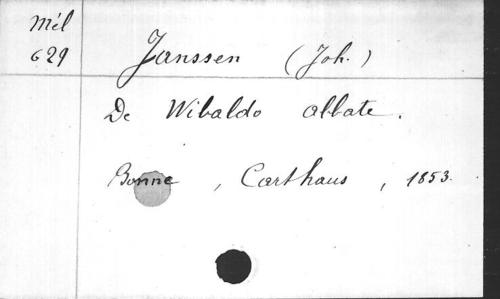 Mél
629
Janssen (Joh.)
De Wibaldo abbate.
Bonne, Carthaus, 1853.